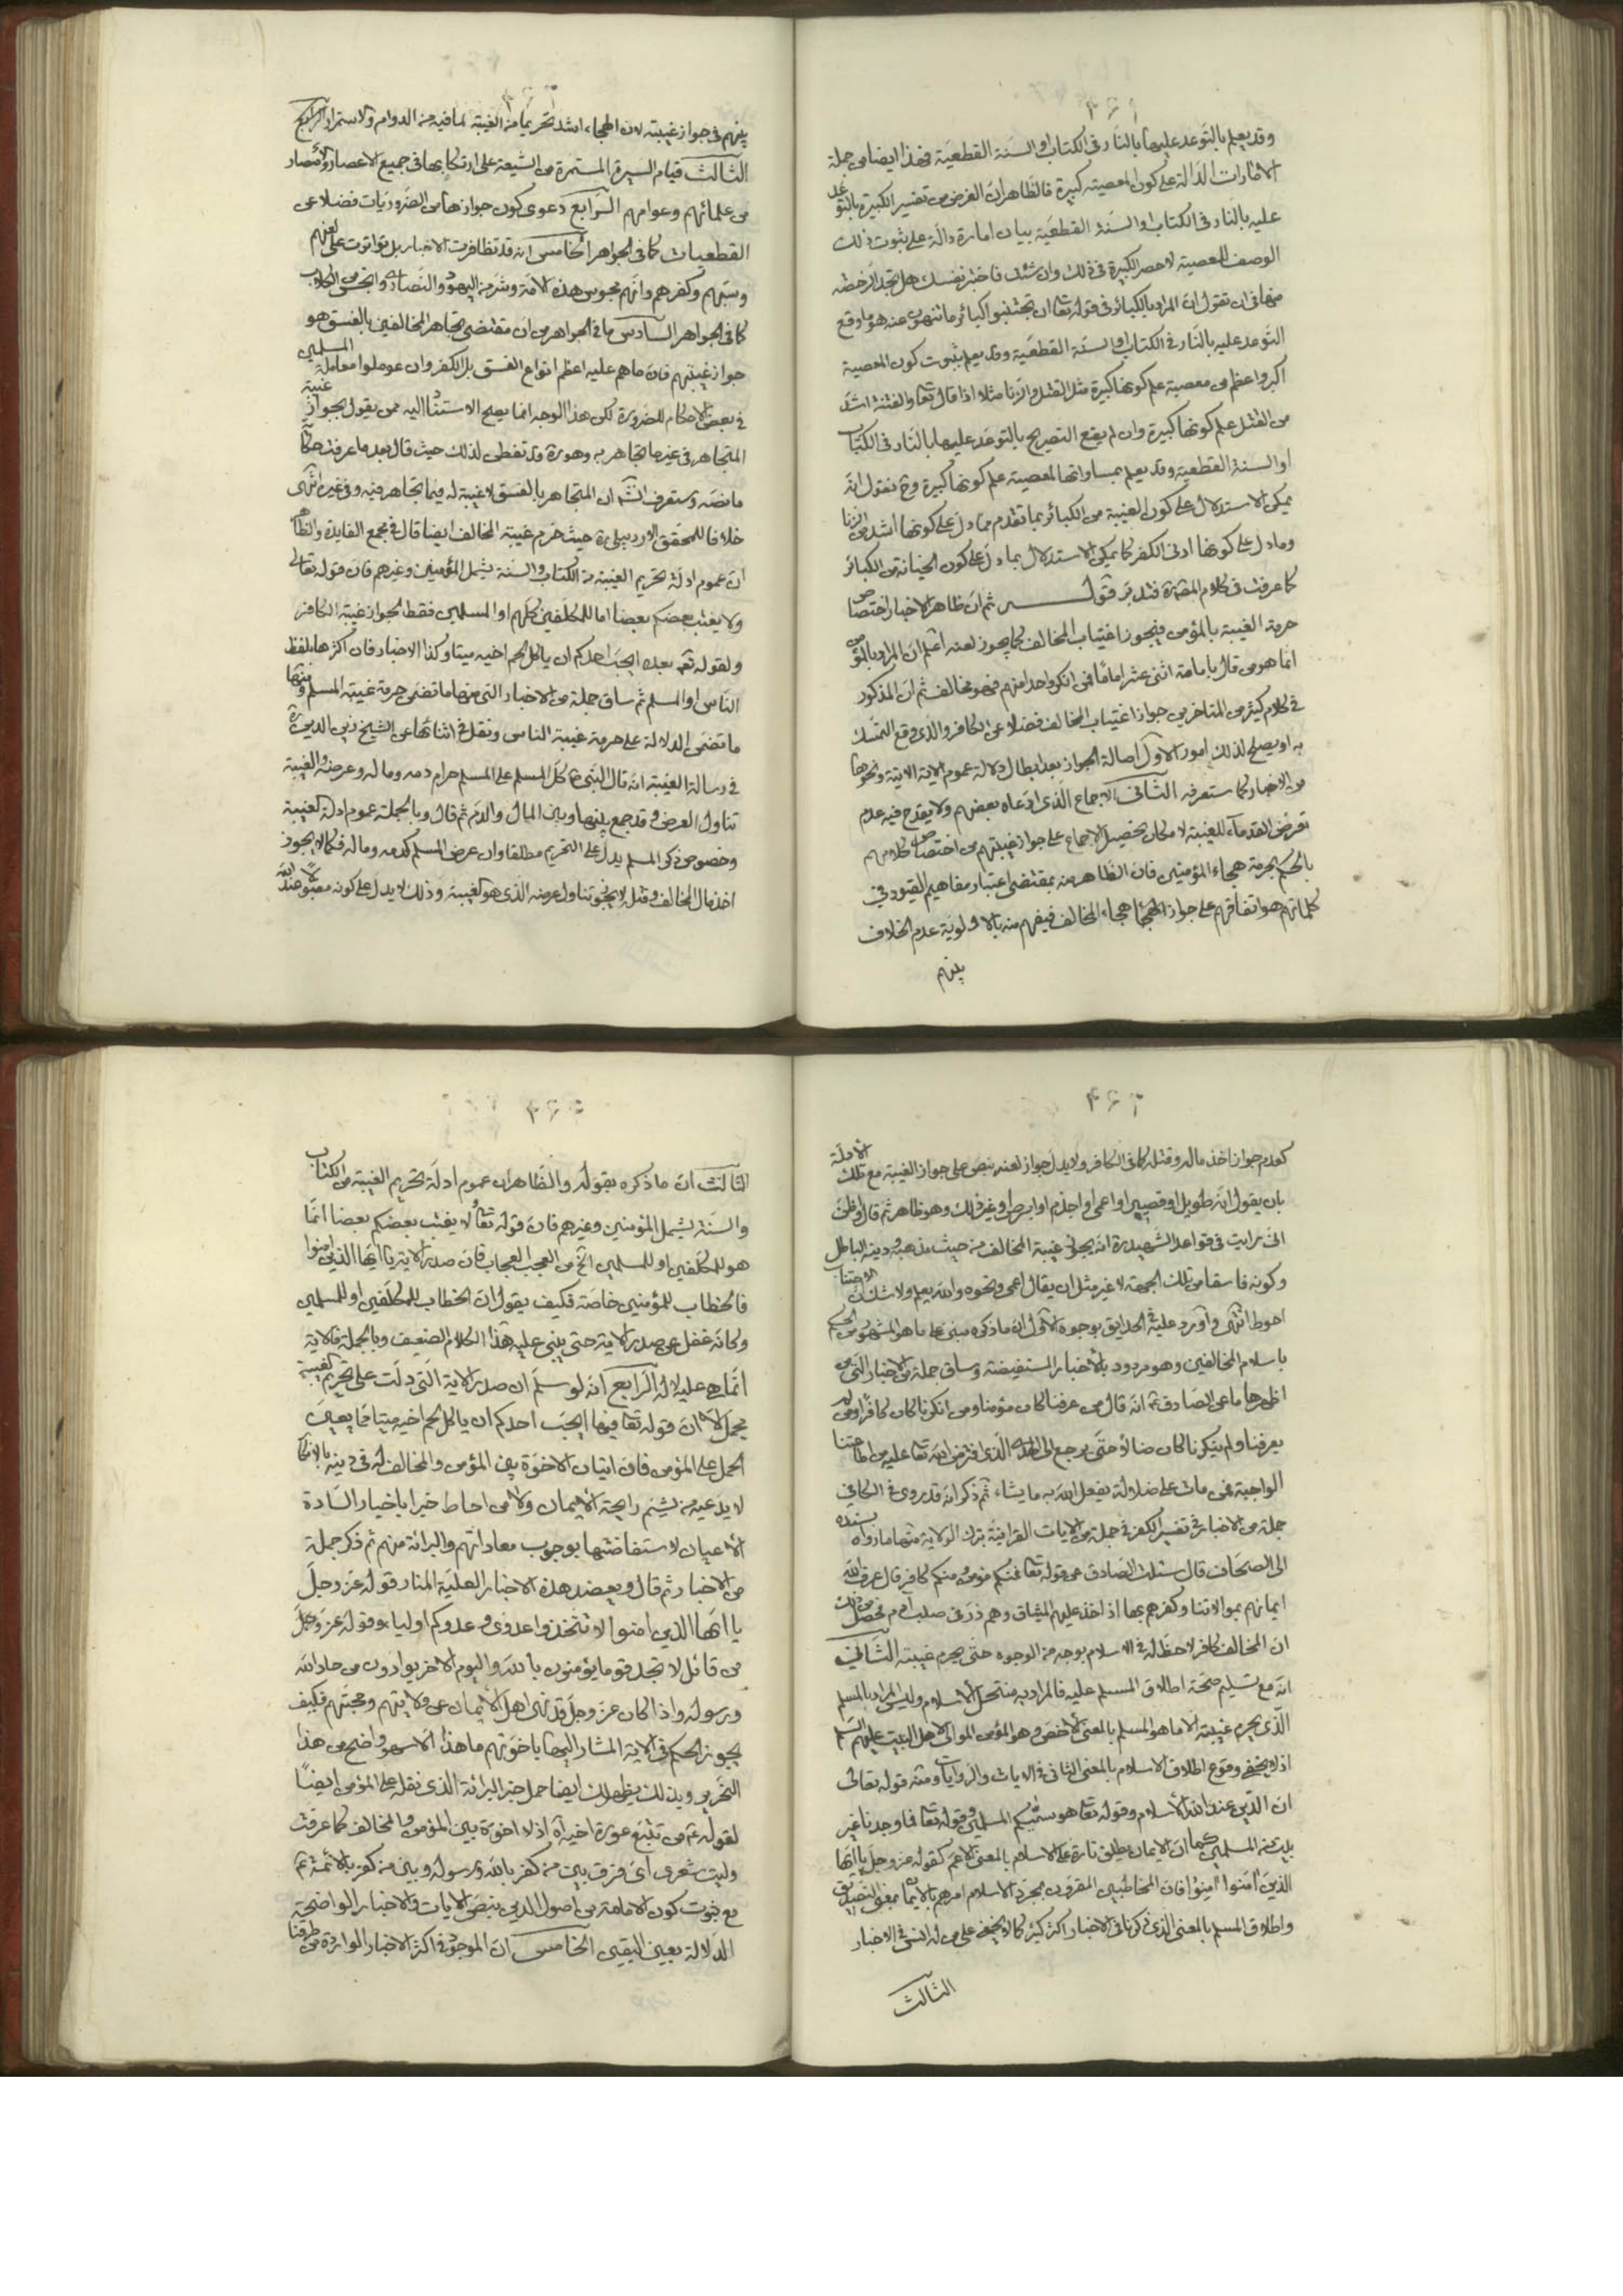 ۴۶۱
وقد يعلم بالتوعد عليها بالنار فى الكتاب او السنة القطعية فهذا ايضا من جملة
الامارات الدالة على كون المعصية كبيرة فالظاهر ان الغرض من تفسير الكبيرة بالتوعد
عليه بالنار فى الكتاب او السنة القطعية بيان امارة دالة على ثبوت ذلك
الوصف للمعصية لا حصر الكبيرة فى ذلك وان شئت فاختبر نفسك هل تجد الرخصة
منها فى ان تقول ان المراد بالكبائر فى قوله تعا ان تجتنبوا كبائر ما تنهون عنه هو ما وقع
التوعد عليه بالنار فى الكتاب او السنة القطعية وقد يعلم بثبوت كون المعصية
اكبر واعظم من معصية علم كونها كبيرة مثل القتل والزنا مثلا اذا قال تعا والفتنة اشد
من القتل علم كونها كبيرة وان لم يقع التصريح بالتوعد عليها بالنار فى الكتاب
او السنة القطعية وقد يعلم بمساواتها لمعصية علم كونها كبيرة وح نقول انه
يمكن الاستدلال على كون الغيبة من الكبائر بما تقدم مما دل على كونها اشد من الزنا
وما دل على كونها ادنى الكفر كما يمكن الاستدلال بما دل على كون الخيانة من الكبائر
كما عرفت فى كلام المصره فتدبر قوله ثم ان ظاهر الاخبار اختصاص
حرمة الغيبة بالمؤمن فيجوز اغتياب المخالف كما يجوز لعنه اعلم ان المراد بالمؤمن
انما هو من قال بامامة اثنى عشر اماما فمن انكر واحدا منهم فهو مخالف ثم ان المذكور
فى كلام كثير من المتاخرين جواز اغتياب المخالف فضلا عن الكافر والذى وقع التمسك
به او يصلح لذلك امور الاول اصالة الجواز بعد ابطال دلالة عموم الاية الاتية ونحوها
من الاخبار كما ستعرفه الثانى الاجماع الذى ادعاه بعضهم ولا يقدح فيه عدم
تعرض القدماء للغيبة لامكان تحصيل الاجماع على جواز غيبتهم من اختصاص كلامهم
بالحكم بحرمة هجاء المؤمنين فان الظاهر منه بمقتضى اعتبار مفاهيم القيود فى
كلماتهم هو اتفاقهم على جواز هجاء المخالف فيفهم منه بالاولوية عدم الخلاف
بينهم
بينهم فى جواز غيبته لان الهجاء اشد تحريما من الغيبة لما فيه من الدوام والاستمرار
الثالث قيام السيرة المستمرة من الشيعة على ارتكابها فى جميع الاعصار والامصار
من علمائهم وعوامهم الرابع دعوى كون جوازها من الضروريات فضلا عن
القطعيات كما فى الجواهر الخامس انه قد تظافرت الاخبار بل تواترت على لعنهم
وسبهم وكفرهم وانهم مجوس هذه الامة وشر من اليهود والنصارى وانجس من الكلاب
كما فى الجواهر السادس ما فى الجواهر من ان مقتضى تجاهر المخالفين بالفسق هو
جواز غيبتهم فان ما هم عليه اعظم انواع الفسق بل الكفر وان عوملوا معاملة المسلمين
فى بعض الاحكام للضرورة لكن هذا الوجه انما يصلح الاستناد اليه ممن يقول بجواز غيبة
المتجاهر فى غير ما تجاهر به وهو ره قد تفطن لذلك حيث قال بعد ما عرفت
ما نصه وستعرف انش ان المتجاهر بالفسق لا غيبة له فيما تجاهر فيه وفى غيره انتهى
خلافا للمحقق الاردبيلى ره حيث حرم غيبة المخالف ايضا قال فى مجمع الفايدة والظاهر
ان عموم ادلة تحريم الغيبة من الكتاب والسنة يشمل المؤمنين وغيرهم فان قوله تعالى
ولا يغتب بعضكم بعضا اما للمكلفين كلهم او المسلمين فقط لجواز غيبة الكافر
ولقوله تعم بعده ايحب احدكم ان ياكل لحم اخيه ميتا وكذا الاخبار فان اكثرها بلفظ
الناس او المسلم ثم ساق جملة من الاخبار التى منها ما تضمن حرمة غيبة المسلم ومنها
ما تضمن الدلالة على حرمة غيبة الناس ونقل فى اثنائها عن الشيخ زين الدين ره
فى رسالة الغيبة انه قال النبى ص كل المسلم على المسلم حرام دمه وماله وعرضه والغيبة
تناول العرض وقد جمع بينها وبين المال والدم ثم قال وبالجملة عموم ادلة الغيبة
وخصوص ذكر المسلم يدل على التحريم مطلقا وان عرض المسلم كدمه وماله فكما لا يجوز
اخذ مال المخالف وقتله لا يجوز تناول عرضه الذى هو الغيبة وذلك لا يدل على كونه مقبولا عند الله
۴۶۲
كعدم جواز اخذ ماله وقتله كما فى الكافر ولا يدل جواز لعنه بنص على جواز الغيبة مع تلك الادلة
بان يقول انه طويل او قصير او اعمى او اجذم او ابرص وغير ذلك وهو ظاهر ثم قال واظن
انى رايت فى قواعد الشهيد ره انه يجوز غيبة المخالف من حيث مذهبه ودينه الباطل
وكونه فاسقا من تلك الجهة لا غير مثل ان يقال اعمى ونحوه والله يعلم ولا شك ان الاجتناب
احوط انتهى واورد عليه فى الحدايق بوجوه الاول ان ما ذكره مبنى على ما هو المشهور من الحكم
باسلام المخالفين وهو مردود بالاخبار المستفيضة وساق جملة من الاخبار التى من
اظهرها ما عن الصادق ع انه قال من عرفنا كان مؤمنا ومن انكرنا كان كافرا ومن لم
يعرفنا ولم ينكرنا كان ضالا حتى يرجع الى الهدى الذى افترض الله تعا عليه من طاعتنا
الواجبة فمن مات على ضلالة يفعل الله به ما يشاء ثم ذكر انه قد روى فى الكافى
جملة من الاخبار فى تفسير الكفر فى جملة من الايات القرانية بترك الولاية منها ما رواه بسنده
الى الصحاف قال سئلت الصادق عن قوله تعا فمنكم مؤمن ومنكم كافر قال عرف الله
ايمانهم بموالاتنا وكفرهم بها اذ اخذ عليهم الميثاق وهم ذر فى صلب ادم فحصل من ذلك
ان المخالف كافر لا حظ له فى الاسلام بوجه من الوجوه حتى يحرم غيبته الثانى
انه مع تسليم صحة اطلاق المسلم عليه فالمراد به منتحل الاسلام وليس المراد بالمسلم
الذى يحرم غيبته الا ما هو المسلم بالمعنى الاخص وهو المؤمن الموالى لاهل البيت عليهم السلام
اذ لا يخفى وقوع اطلاق الاسلام بالمعنى الثانى فى الايات والروايات ومنه قوله تعالى
ان الدين عند الله الاسلام وقوله تعا هو سميكم المسلمين وقوله تعا فما وجدنا غير
بيت من المسلمين كما ان الايمان يطلق تارة على الاسلام بالمعنى الاعم كقوله عز وجل يا ايها
الذين آمنوا آمنوا فان المخاطبين المقرون بمجرد الاسلام امرهم بالايمان بمعنى التصديق
واطلاق المسلم بالمعنى الذى ذكرنا فى الاخبار اكثر كثير كما لا يخفى على من له انس فى الاخبار
الثالث
۴۶۳
الثالث ان ما ذكره بقوله والظاهر ان عموم ادلة تحريم الغيبة من الكتاب
والسنة يشمل المؤمنين وغيرهم فان قوله تعا ولا يغتب بعضكم بعضا انما
هو للمكلفين او للمسلمين الخ من العجب العجاب فان صدر الاية يا ايها الذين امنوا
فالخطاب للمؤمنين خاصة فكيف يقول ان الخطاب للمكلفين او للمسلمين
وكانه غفل عن صدر الاية حتى بنى عليه هذا الكلام الضعيف وبالجملة فالاية
انما هى عليه لا له الرابع انه لو سلم ان صدر الاية التى دلت على تحريم الغيبة
مجمل الا ان قوله تعا فيها ايحب احدكم ان ياكل لحم اخيه ميتا مما يعين
الحمل على المؤمن فان اثبات الاخوة بين المؤمن والمخالف له فى دينه
لا يدعيه من يشم رايحة الايمان ولا من احاط خبرا باخبار السادة
الاعيان لاستفاضتها بوجوب معاداتهم والبرائة منهم ثم ذكر جملة
من الاخبار ثم قال ويعضد هذه الاخبار العلية المنار قوله عز وجل
يا ايها الذين امنوا لا تتخذوا عدوى وعدوكم اولياء وقوله عز وجل
من قائل لا تجد قوما يؤمنون بالله واليوم الاخر يوادون من حاد الله
ورسوله واذا كان عز وجل قد نهى اهل الايمان عن ولايتهم ومحبتهم فكيف
يجوز الحكم فى الاية المشار اليها باخوتهم ما هذا الا سهو واضح من هذا
التحرير وبذلك يظهر لك ايضا حمل خبر البرائة الذى نقله على المؤمن ايضا
لقوله ع من تتبع عورة اخيه آه اذ لا اخوة بين المؤمن والمخالف كما عرفت
وليت شعرى اى فرق بين من كفر بالله ورسوله وبين من كفر بالائمة ع
مع ثبوت كون الامامة من اصول الدين بنص الايات والاخبار الواضحة
الدلالة بعين اليقين الخامس ان الموجود فى اكثر الاخبار الواردة من طرقنا